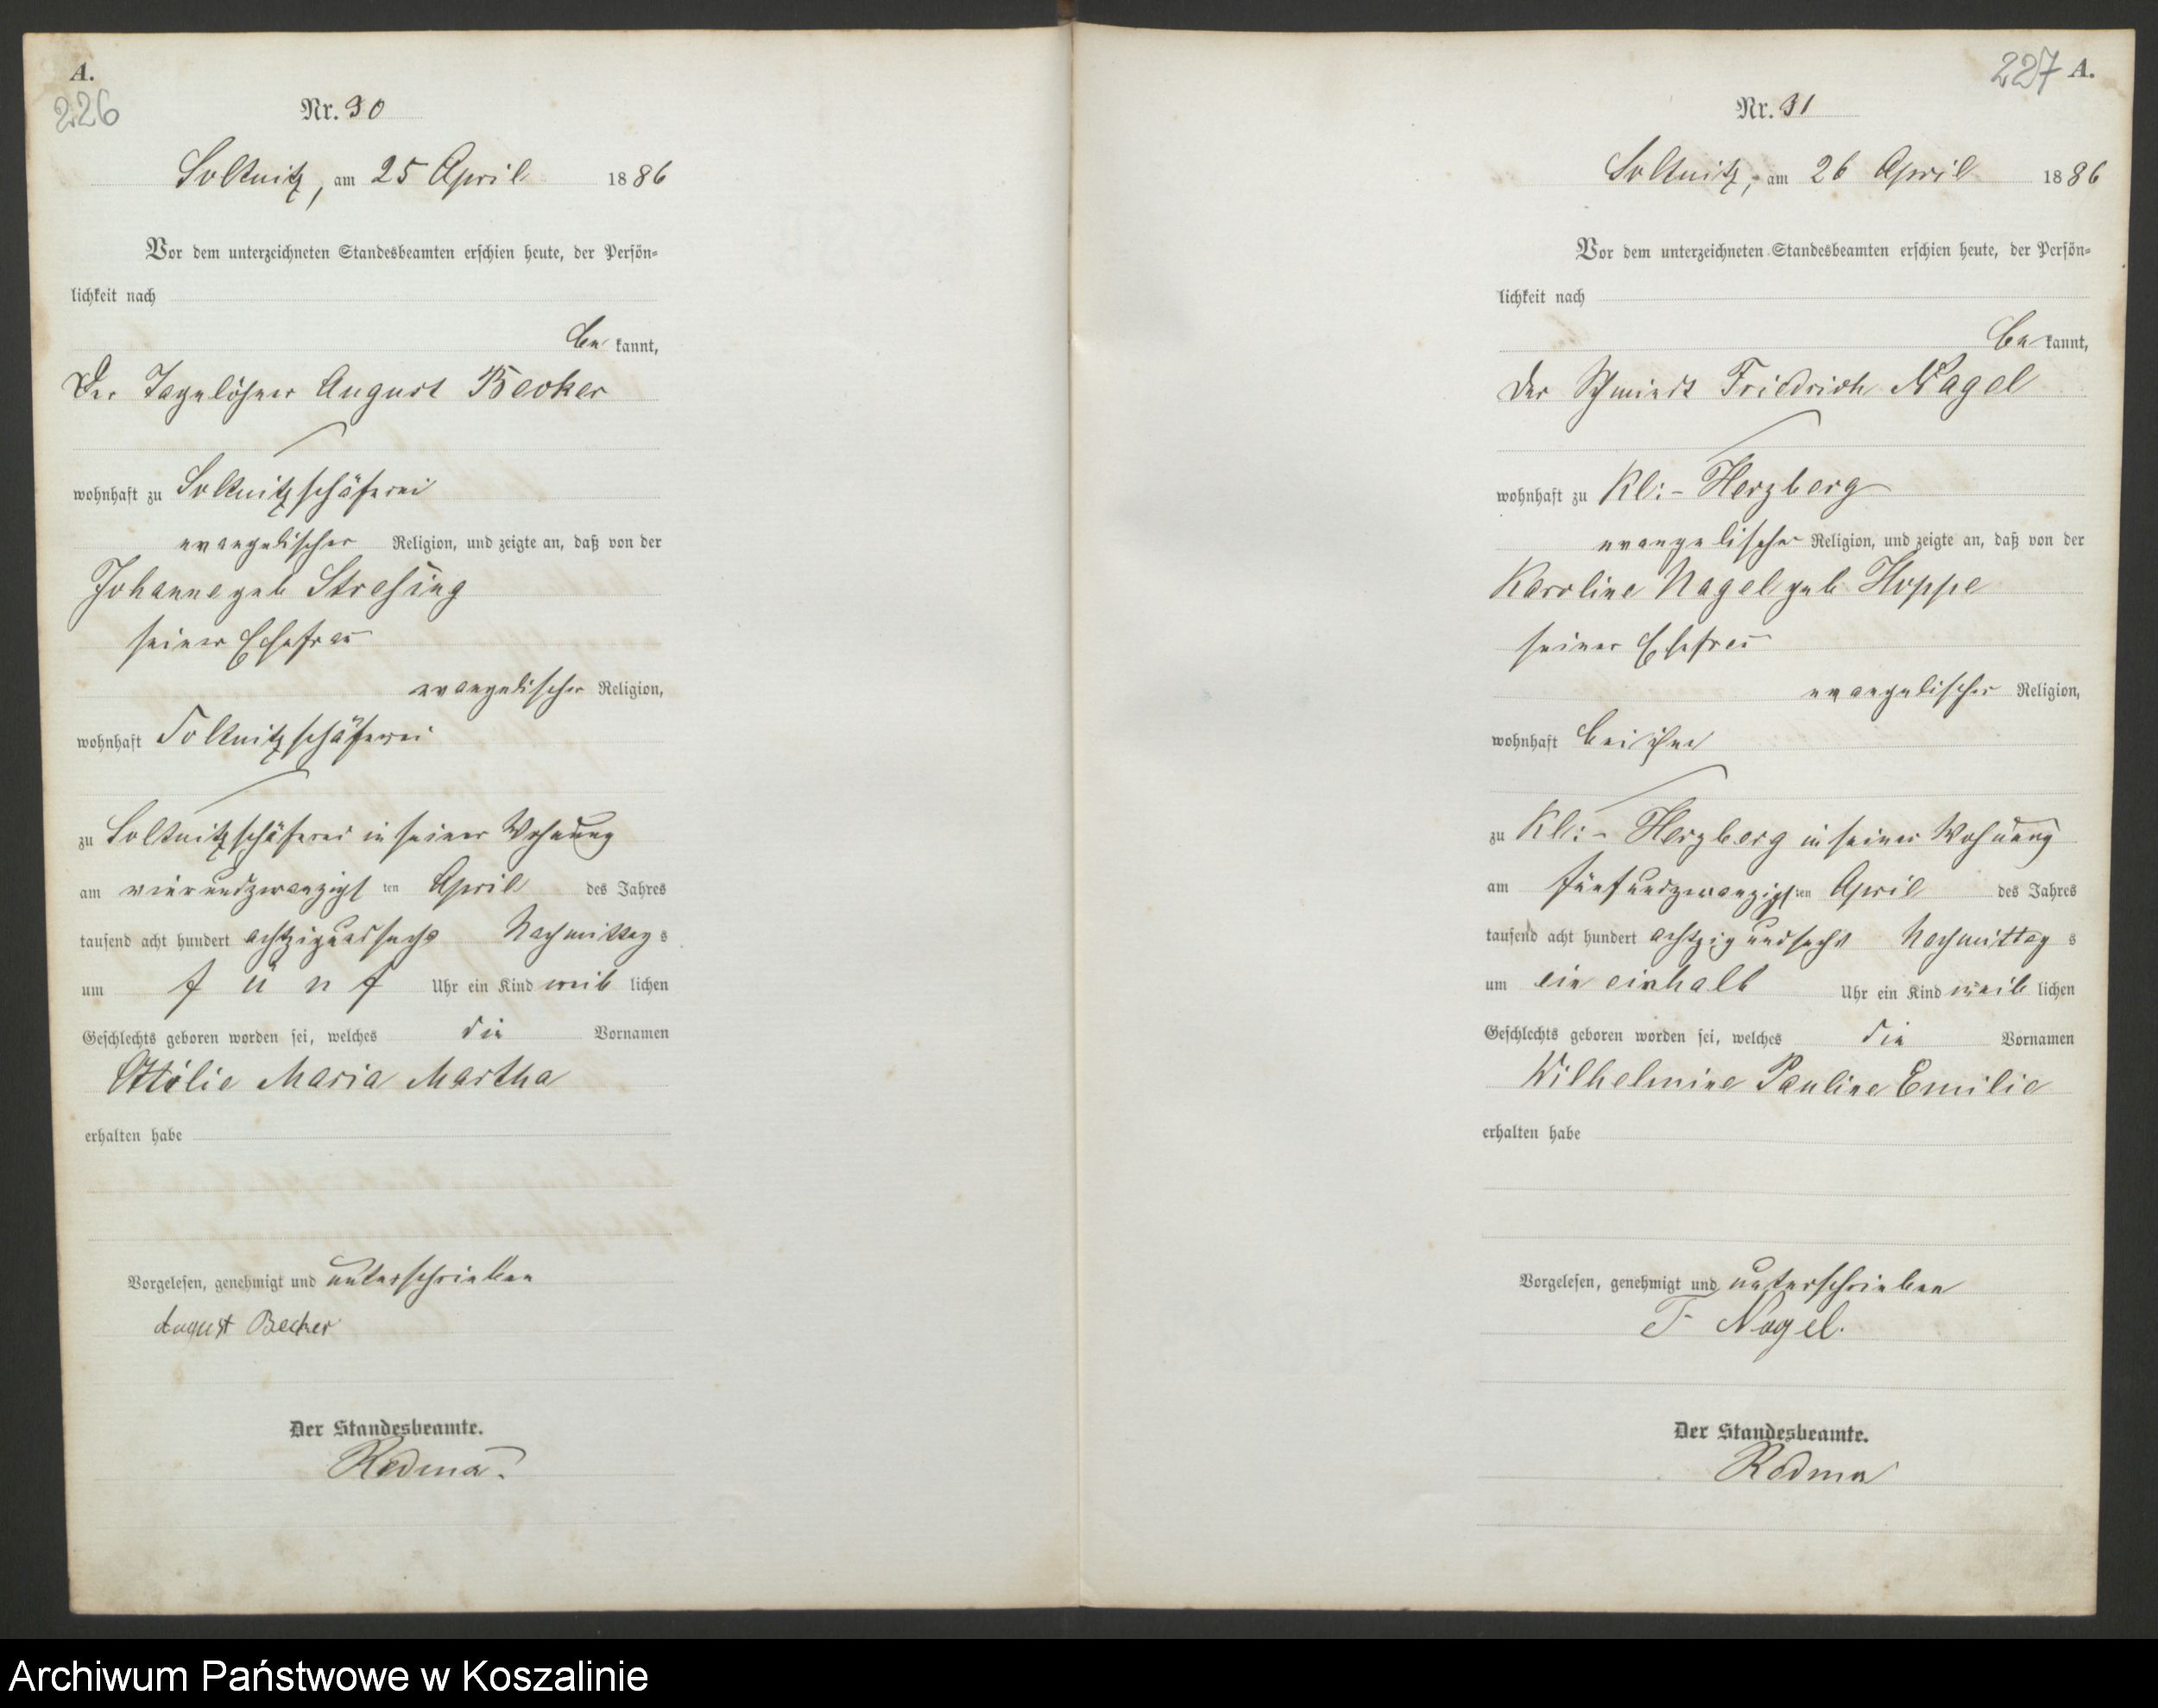 A.
226
Nr. 30
Soltnitz, am 25 April 1886
Vor dem unterzeichneten Standesbeamten erschien heute, der Persön-
lichkeit nach
be kannt,
Der Tagelöhner August Becker
wohnhaft zu Soltnitzschäferei
evangelischer Religion, und zeigte an, daß von der
Johanne geb Stresing
seiner Ehefrau
evangelischer Religion,
wohnhaft Soltnitzschäferei
zu Soltnitzschäferei in seiner Wohnung
am vierundzwanzigsten April des Jahres
tausend acht hundert achtzig und sechs Nachmittags
um fünf Uhr ein Kind weiblichen
Geschlechts geboren worden sei, welches die Vornamen
Ottilie Maria Martha
erhalten habe
Vorgelesen, genehmigt und unterschrieben
August Becker
Der Standesbeamte.
227 A.
Nr. 31
Soltnitz, am 26 April 1886
Vor dem unterzeichneten Standesbeamten erschien heute, der Persön-
lichkeit nach
be kannt,
der Schmiedt Friedrich Nagel
wohnhaft zu Kl:- Herzberg
evangelischer Religion, und zeigte an, daß von der
Karoline Nagel geb Hoppe
seiner Ehefrau
evangelischer Religion,
wohnhaft bei ihm
zu Kl:- Herzberg in seiner Wohnung
am fünfundzwanzigsten April des Jahres
tausend acht hundert achtzig und sechs Nachmittags
um ein einhalb Uhr ein Kind weiblichen
Geschlechts geboren worden sei, welches die Vornamen
Wilhelmine Pauline Emilie
erhalten habe
Vorgelesen, genehmigt und unterschrieben
F Nagel.
Der Standesbeamte.
Archiwum Państwowe w Koszalinie